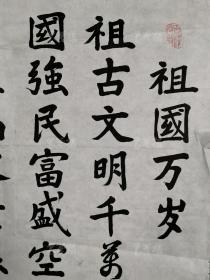 祖國万岁
祖古文明千萬
國強民富盛空